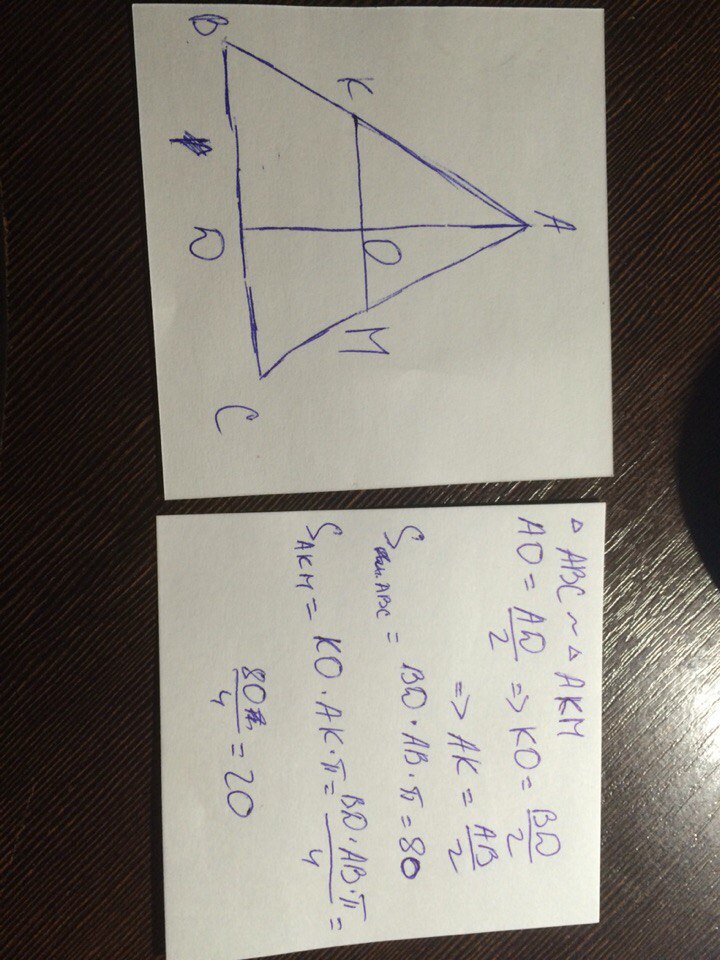 A
K
O
M
B
D
C
△ ABC ~ △ AKM
AO = AD/2 => KO = BD/2
=> AK = AB/2
S ABC = BD · AB · π = 80
S AKM = KO · AK · π = BD · AB · π/4 =
80/4 = 20